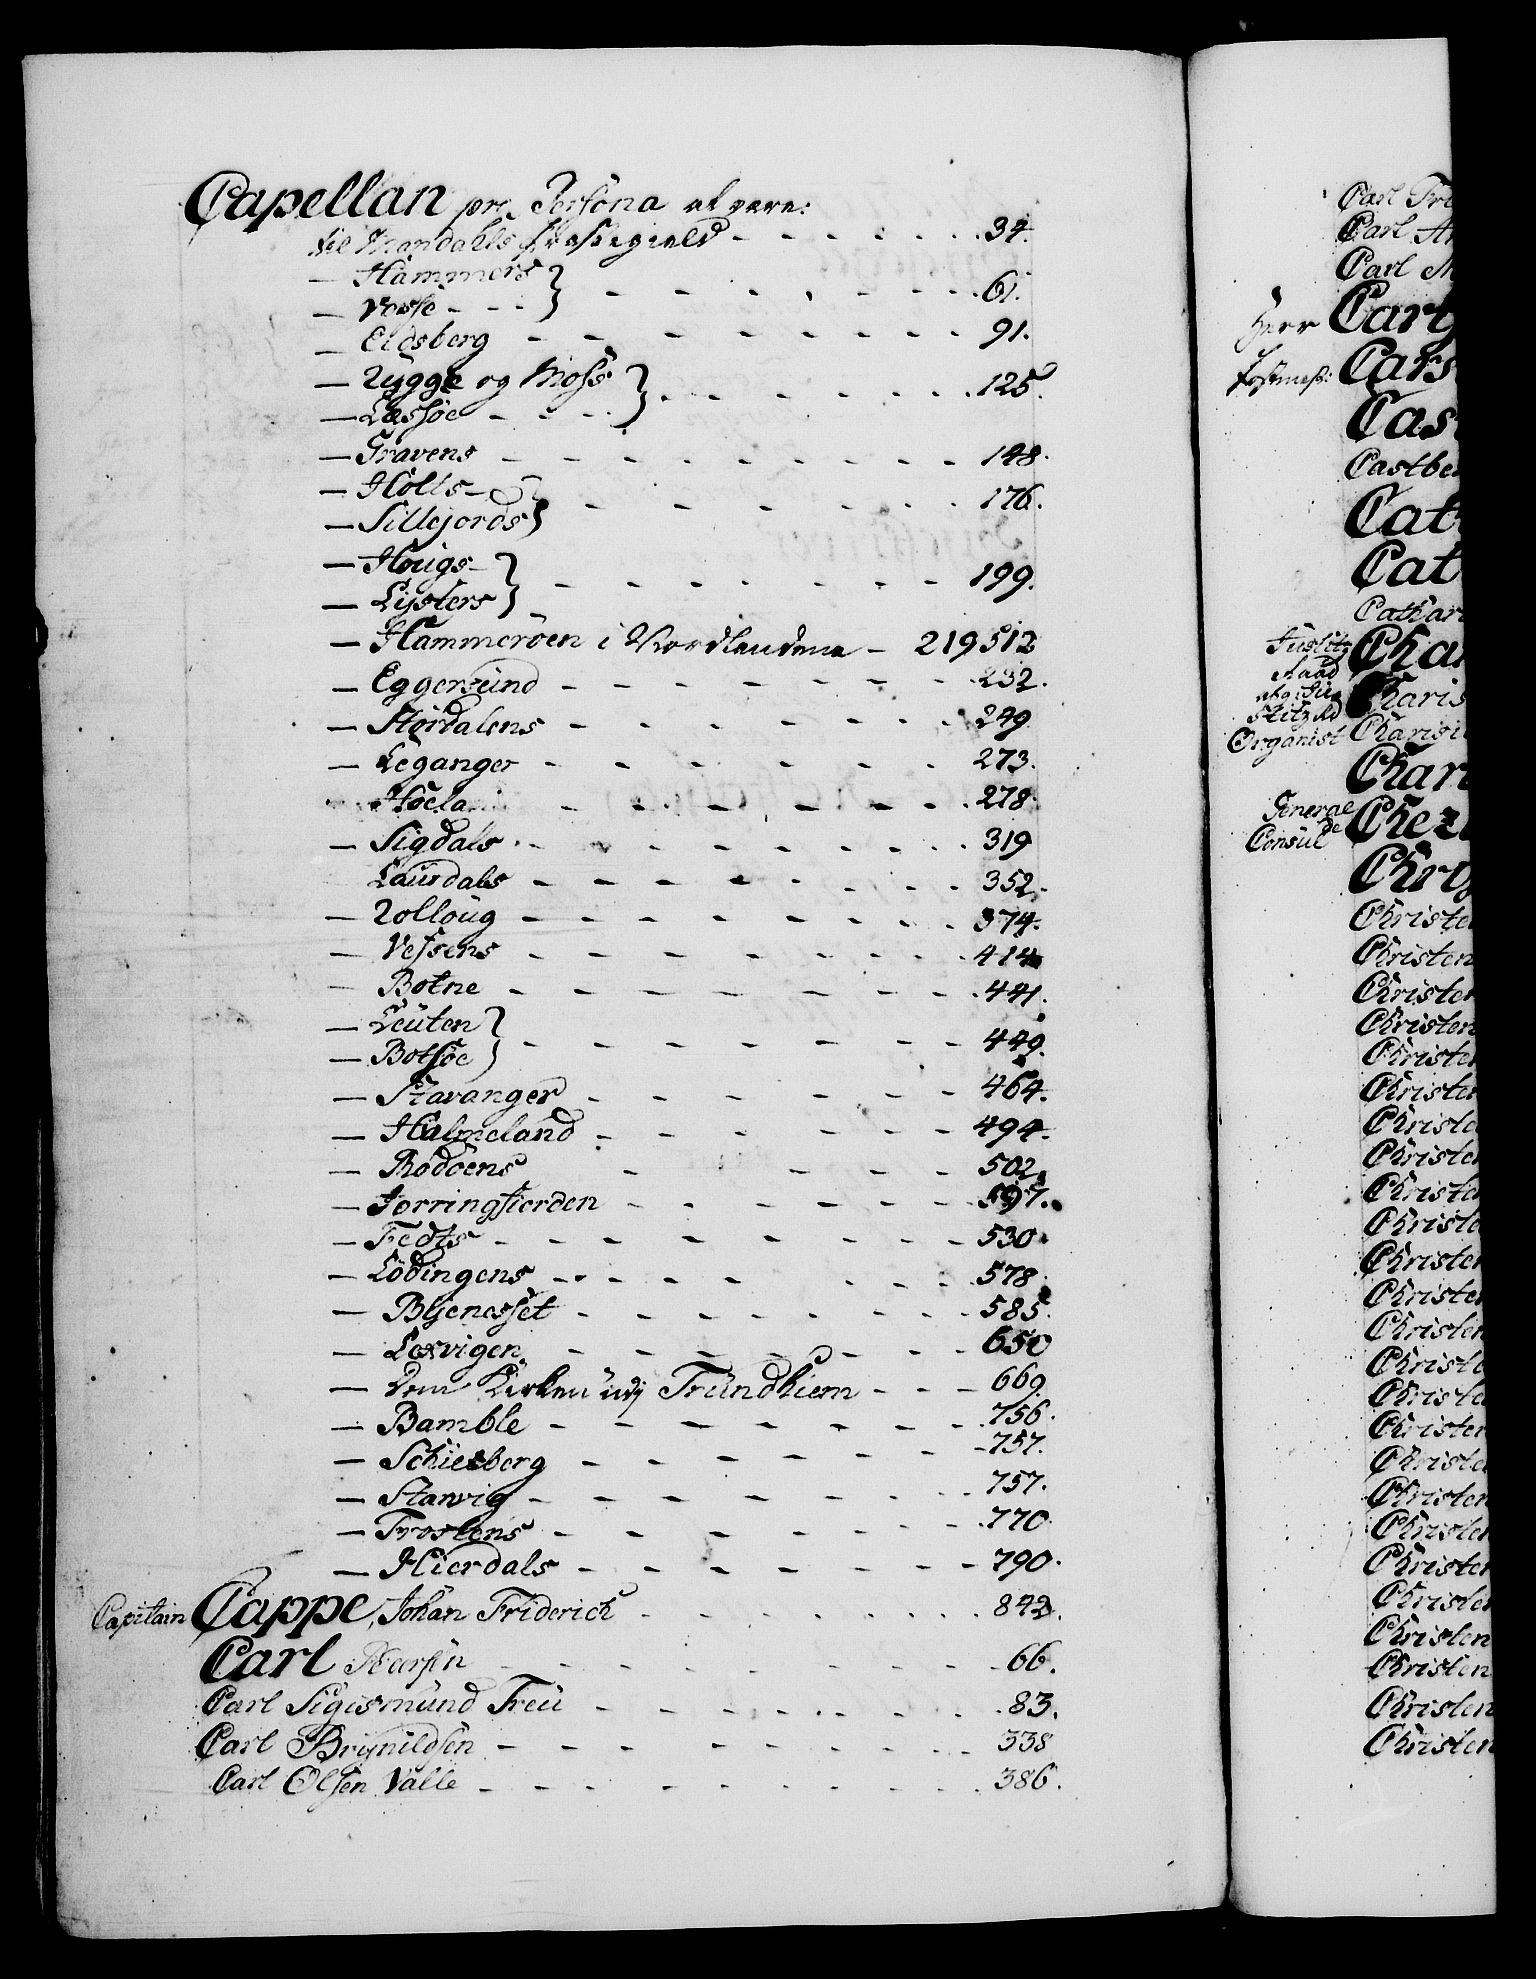 Capellan pro Persona at være:
til Mandahls Præstegield - - - - - 34.
— Hammers }
— Vosse - - - } - - - - - - 61.
— Eidsberg - - - - - - - 91.
— Rygge og Moss }
— Lessøe - - - - } - - - - - 125.
— Gravens - - - - - - - 148.
— Holts - }
— Sillejords } - - - - - - 176.
— Hougs - }
— Lysters } - - - - - - 199.
— Hammerøen i Nordlandene - 219 512
— Eggersund - - - - - - - 232.
— Størdalens - - - - - - 249.
— Leganger - - - - - - 273.
Høela - - - - - - - 278.
— Sigdals - - - - - - - 319
Laurdals - - - - - - - 352.
— Rolloug - - - - - - - 374.
— Vefsens - - - - - - - 414
— Botne - - - - - - - 441.
— Leuten }
— Botsøe } - - - - - - - 449.
— Stavanger - - - - - - 464.
— Halmeland - - - - - - 494.
— Rødøens - - - - - 502.
— Jorringfiorden - - - - - - 597.
— Fedts - - - - - - - - 530.
— Lødingens - - - - - - - 578.
— Byenesset - - - - - - - 585.
— Lexvigen - - - - - - - 650
— Dom Kirken udj Trundhiem - - - 669.
— Bamble - - - - - - - 756.
— Schieberg - - - - - - - 757.
— Stanvig - - - - - - - 757.
— Frostens - - - - - - - 770.
— Hierdals - - - - - - - 790.
Capitain Cappe, Johan Friderich - - - - - - 842.
Carl Peersen - - - - - - - 66.
Carl Sigismund Treu - - - - - - - 83.
Carl Brynildsen - - - - - - - - 338
Carl Olsen Valle - - - - - - - - 386.
Carl
Carl
Carl
Herr
Castbe
Cathar
Justitz
Raad
Organist Charisi
General
Consul de
Christe
Christen
Christen
Christen
Christen
Christen
Christe
Christen
Christen
Christe
Christen
Christen
Christen
Christe
Christe
Christen
Christe
Christen
Christen
Christen
Christen
Christen
Christen
Christen
Christen